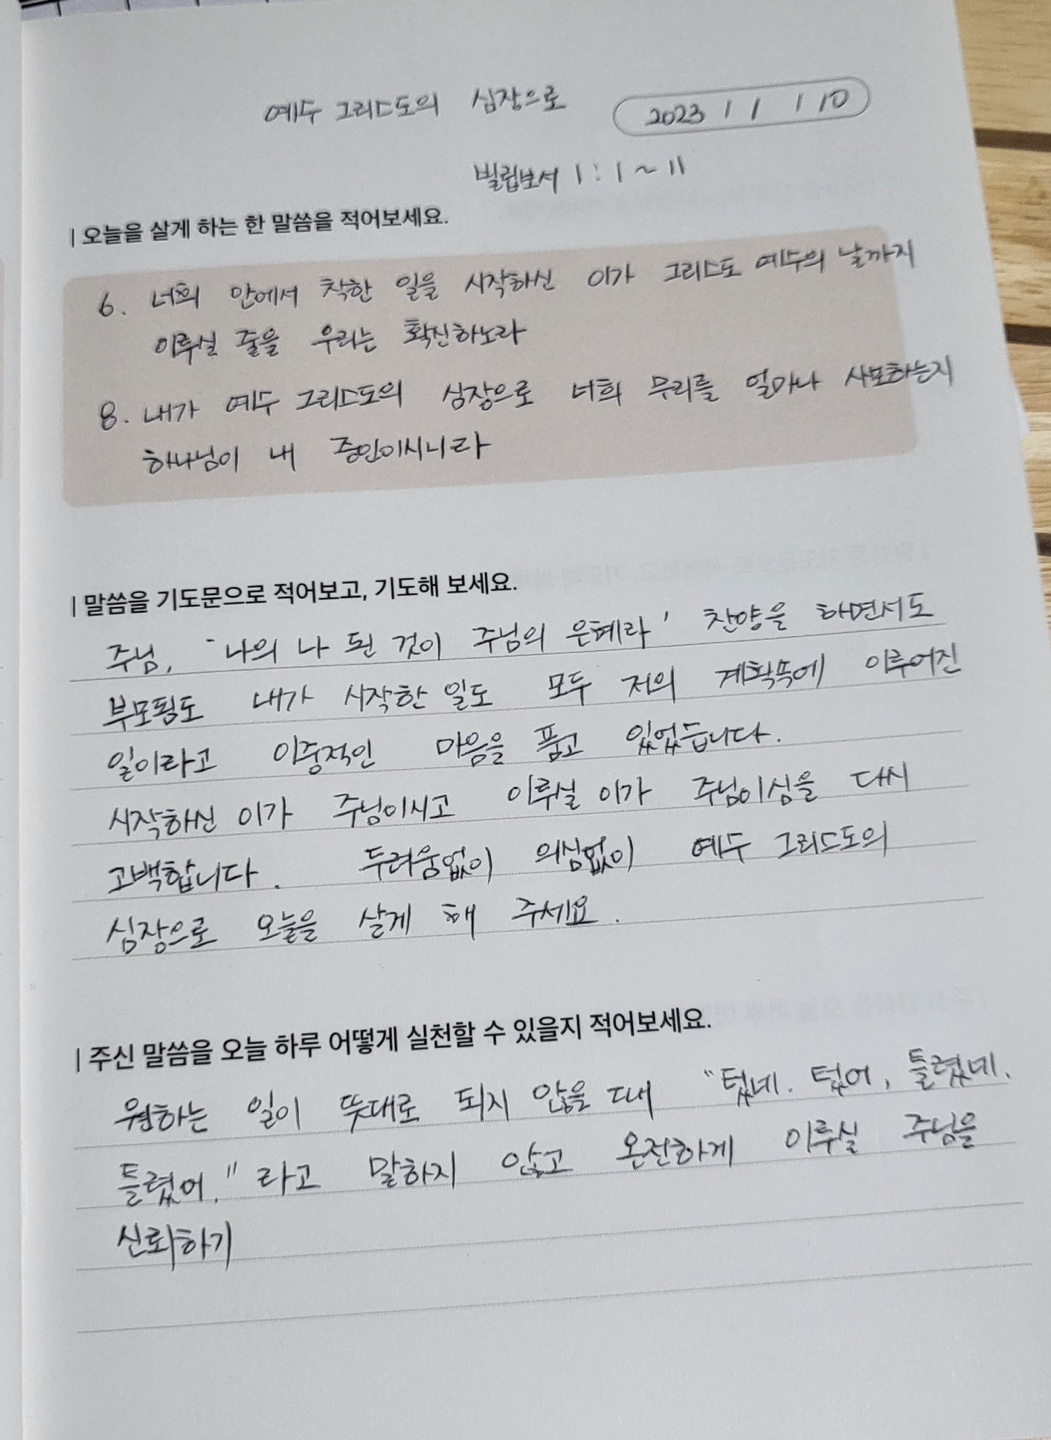 예수 그리스도의 심장으로
2023 / 1 / 10
빌립보서 1 : 1 ~ 11
| 오늘을 살게 하는 한 말씀을 적어보세요.
6. 너희 안에서 착한 일을 시작하신 이가 그리스도 예수의 날까지
이루실 줄을 우리는 확신하노라
8. 내가 예수 그리스도의 심장으로 너희 무리를 얼마나 사모하는지
하나님이 내 증인이시니라
| 말씀을 기도문으로 적어보고, 기도해 보세요.
주님, '나의 나 된 것이 주님의 은혜라' 찬양을 하면서도
부모됨도 내가 시작한 일도 모두 저의 계획속에 이루어진
일이라고 이중적인 마음을 품고 있었습니다.
시작하신 이가 주님이시고 이루실 이가 주님이심을 다시
고백합니다. 두려움없이 의심없이 예수 그리스도의
심장으로 오늘을 살게 해 주세요.
| 주신 말씀을 오늘 하루 어떻게 실천할 수 있을지 적어보세요.
원하는 일이 뜻대로 되지 않을 때 "텄네. 텄어, 틀렸네.
틀렸어." 라고 말하지 않고 온전하게 이루실 주님을
신뢰하기